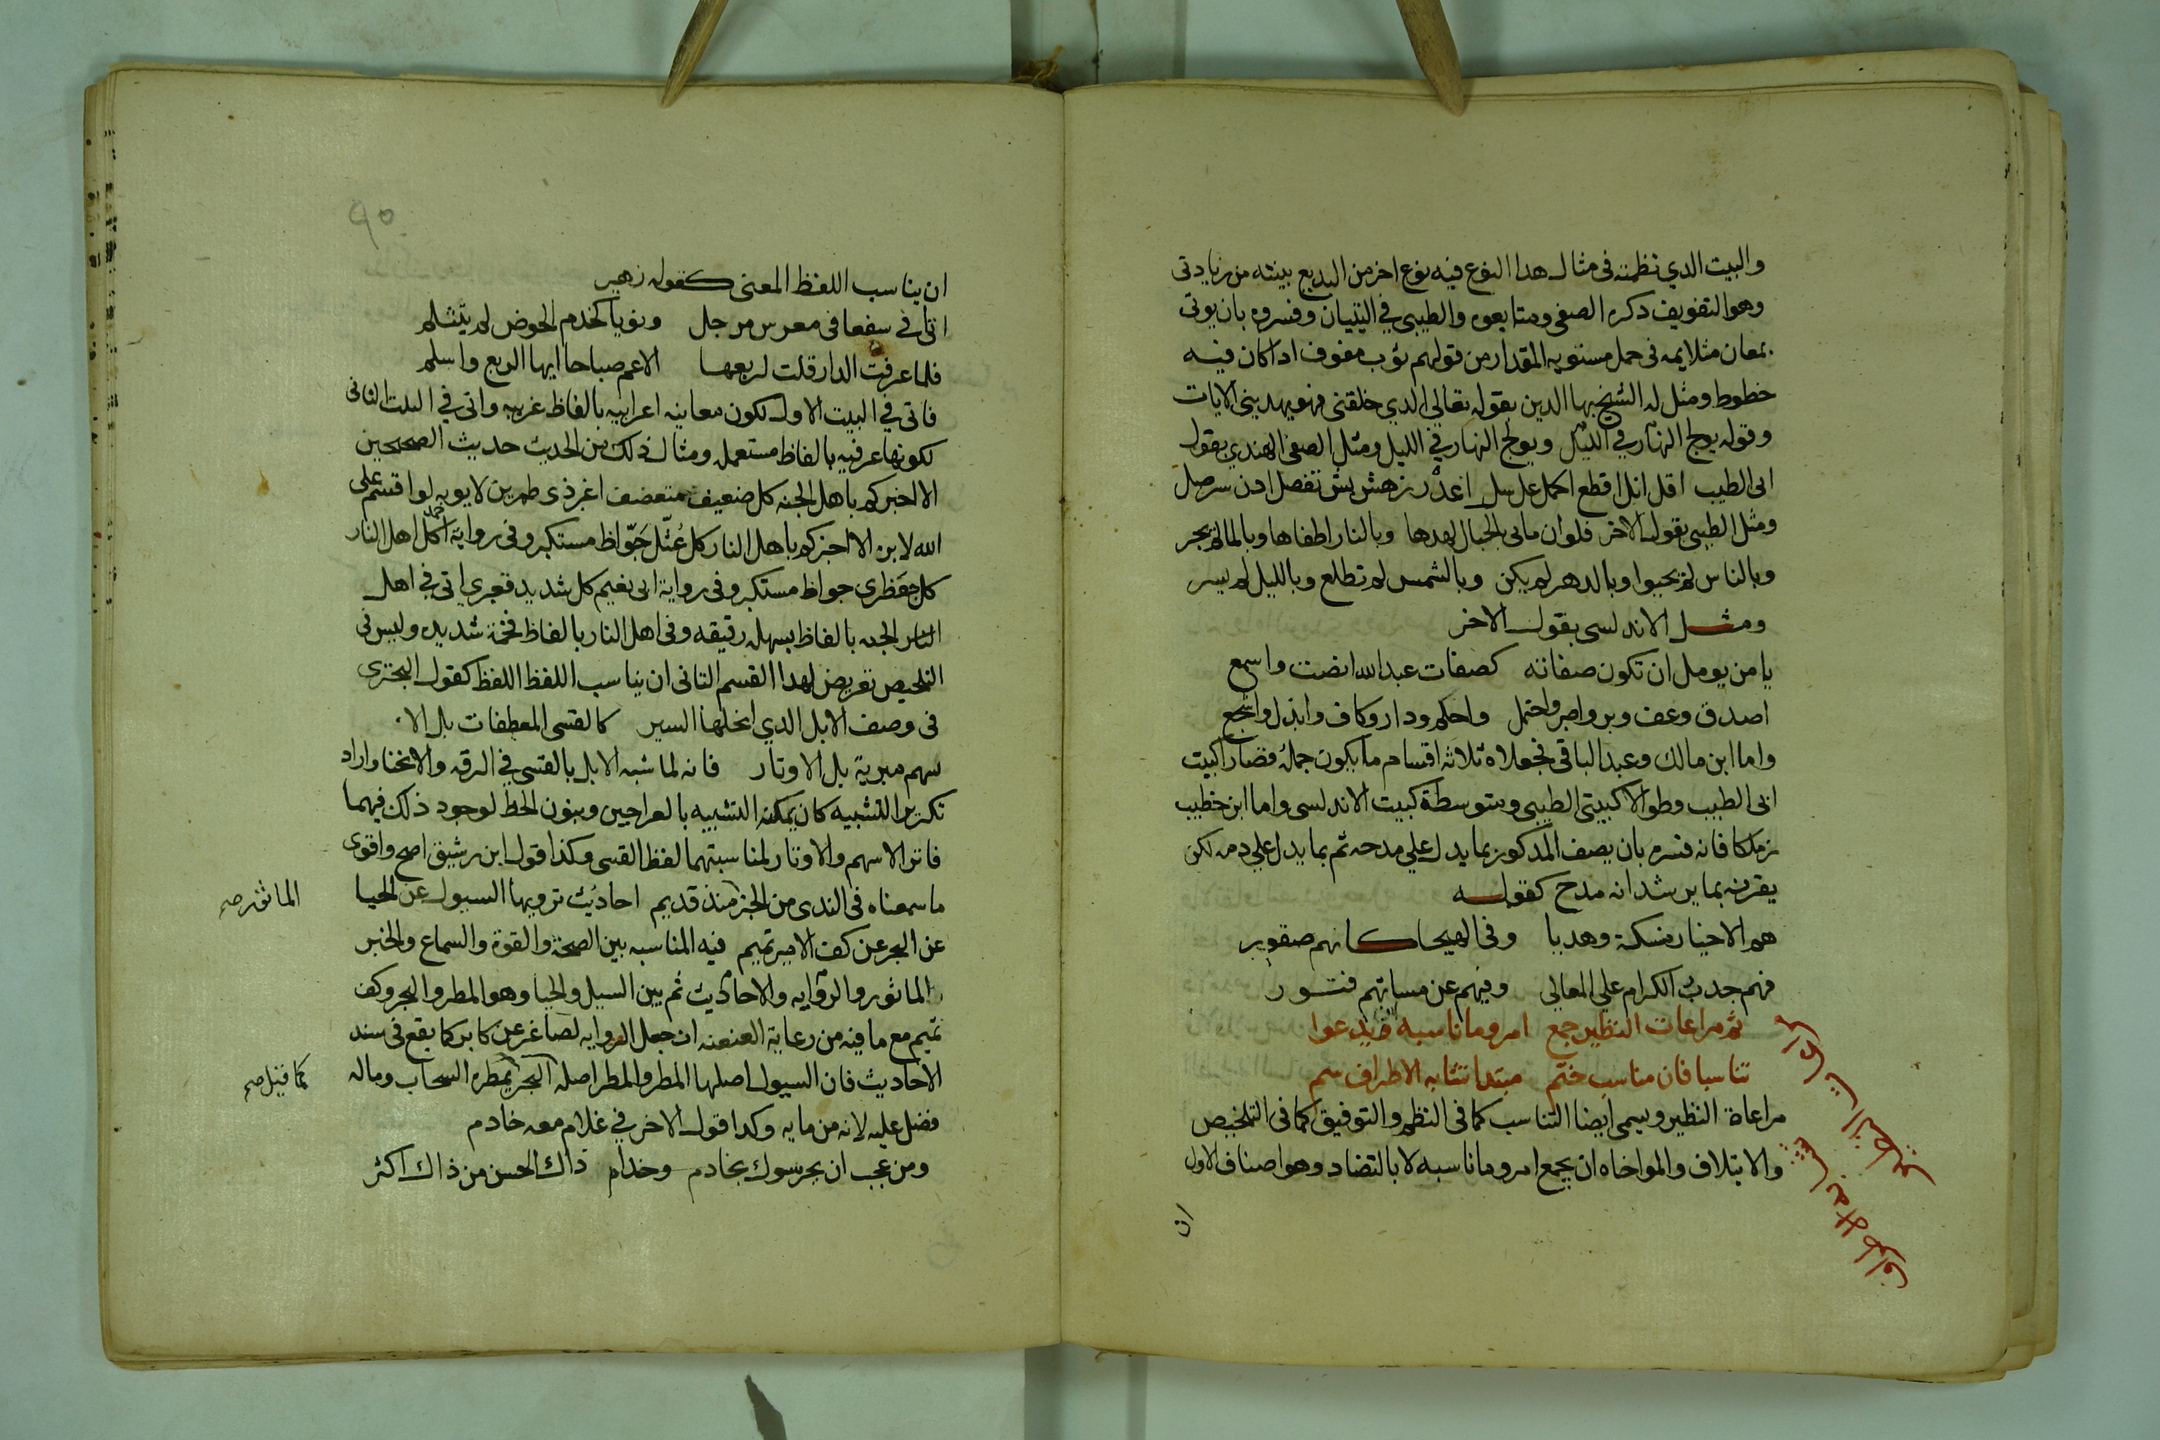 والبيت الذي نظمته في مثال هدا النوع فيه نوع اخر من البديع بينته من زيادتى
وهو التفويف دكره الصفى ومتابعوه والطيبى في التبيان وفسروه بان يوتى
بمعان متلايمه فى جمل مستويه المقدار من قولهم ثوب مفوف ادا كان فيه
خطوط ومثل له الشيخ بها الدين بقوله تعالى الدي خلقنى فهو يهدينى الايات
وقوله يولج النهار في الليل ويولج النهار في الليل ومثل الصفى الهندي بقول
ابى الطيب اقل انل اقطع احمل عل سل اعد زد هش بش تفضل ادن سر صل
ومثل الطيبى بقول الاخر فلو ان مابى بالجبال لهدها وبالنار اطفاها وبالما لم يجر
وبالناس لم يحيوا وبالدهر لم يكن وبالشمس لم تطلع وبالليل لم يسر
ومثل الاندلسى بقول الاخر
يا من يومل ان تكون صفاته كصفات عبد الله انصت واسمع
اصدق وعف وبر واصبر واحتمل واحكم ودار وكاف وابذل واشجع
واما ابن مالك وعبد الباقى فجعلاه ثلاثه اقسام ما يكون جمله قصارا كبيت
ابى الطيب وطوالا كبيتى الطيبى ومتوسطة كبيت الاندلسى واما ابن خطيب
زملكا فانه فسره بان يصف المدكور بما يدل على مدحه ثم بما يدل على دمه لكن
يقرنه بما يرشد انه مدح كقوله
هم الاخيار منسكة وهديا وفى الهيجا كانهم صقور
فهم جدب الكرام على المعالى وفيهم عن مساتهم فتور
ثم مراعات النظير جمع امر وما ناسبه قد يدعوا
تناسبا فان مناسب ختم مبتدا تشابه الاطراف سم
مراعاة النظير ويسمى ايضا التناسب كما فى النظم والتوفيق كما فى التلخيص
والايتلاف والمواخاه ان يجمع امر وما ناسبه لا بالتضاد وهو اصناف الاول
مراعات النظير
تشابه الاطراف
ان
٩٥
ان يناسب اللفظ المعنى كقوله زهير
اثافي سفعا فى معرس مرجل ونويا كجذم الحوض لم يتثلم
فلما عرفت الدار قلت لربعها الا عم صباحا ايها الربع واسلم
فاتى في البيت الاول لكون معانيه اعرابيه بالفاظ غريبه واتى في البيت الثانى
لكونها عرفيه بالفاظ مستعمله ومثال ذلك من الحديث حديث الصحيحين
الا اخبركم باهل الجنه كل ضعيف متضعف اغبر ذى طمرين لا يوبه لو اقسم على
الله لابره الا اخبركم باهل النار كل عُتُل جَوّاظ مستكبر وفى رواية احمد كل اهل النار
كل جعظرى جواظ مستكبر وفى رواية ابى نعيم كل شديد قعبري اتى في اهل
الجنه بالفاظ سهله رقيقه وفى اهل النار بالفاظ فخمة شديده وليس فى
التلخيص تعريض لهدا القسم الثانى ان يناسب اللفظ اللفظ كقول البحترى
فى وصف الابل الدي انحلها السير كالقسى المعطفات بل الا
سهم مبرية بل الاوتار فانه لما شبه الابل بالقسى في الرقه والانحنا واراد
تكرير التشبيه كان يمكنه التشبيه بالعراجين وبنون الخط لوجود ذلك فيهما
فاثر الاسهم والاوتار لمناسبتهما لفظ القسى وكذا قول ابن رشيق اصح واقوى
ما سمعناه فى الندى من الخبر منذ قديم احاديث ترويها السيول عن الحيا
عن البحر عن كف الامير تميم فيه المناسبه بين الصحة والقوة والسماع والخبر
الماثور والروايه والاحاديث ثم بين السيل والحيا وهو المطر والبحر وكف
تميم مع ما فيه من رعاية العنعنه ان جعل الروايه لصاغر عن كابر كما يقع فى سند
الاحاديث فان السيول اصلها المطر والمطر اصله البحر يمطره السحاب وماله
فضل عليه لانه من مايه وكدا قول الاخر في غلام معه خادم
ومن عجب ان يحرسوك بخادم وخدام ذاك الحسن من ذاك اكثر
الماثور صح
كما قيل صح